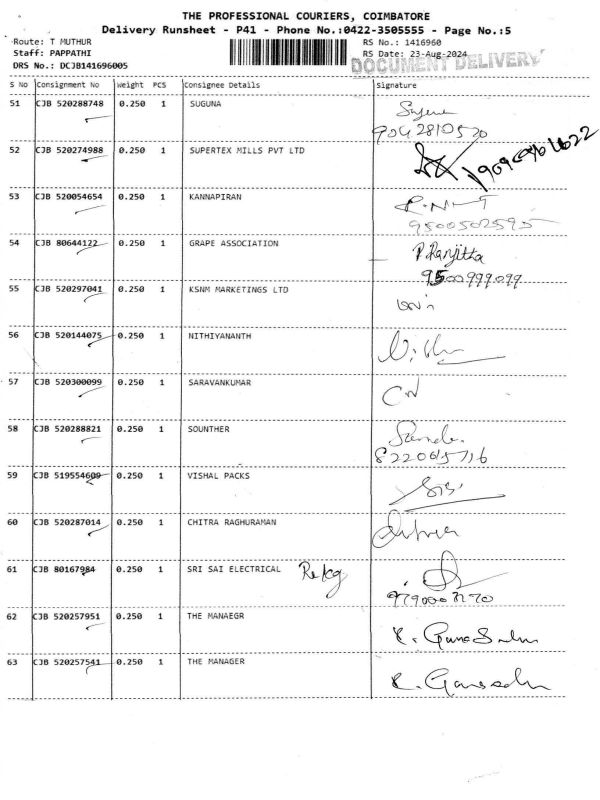 THE PROFESSIONAL COURIERS, COIMBATORE
Delivery Runsheet - P41 - Phone No.:0422-3505555 - Page No.:5
Route: T MUTHUR RS No.: 1416960
Staff: PAPPATHI RS Date: 23-Aug-2024
DOCUMENT DELIVERY
DRS No.: DCJB141696005
S No Consignment No Weight PCS Consignee Details Signature
51 CJB 520288748 0.250 1 SUGUNA
9042810520
52 CJB 520274988 0.250 1 SUPERTEX MILLS PVT LTD
53 CJB 520054654 0.250 1 KANNAPIRAN
9500502595
54 CJB 80644122 0.250 1 GRAPE ASSOCIATION P. Ranjitha
9500999099
55 CJB 520297041 0.250 1 KSNM MARKETINGS LTD
56 CJB 520144075 0.250 1 NITHIYANANTH
57 CJB 520300099 0.250 1 SARAVANKUMAR
58 CJB 520288821 0.250 1 SOUNTHER
59 CJB 519554609 0.250 1 VISHAL PACKS
60 CJB 520287014 0.250 1 CHITRA RAGHURAMAN
61 CJB 80167984 0.250 1 SRI SAI ELECTRICAL
62 CJB 520257951 0.250 1 THE MANAEGR
63 CJB 520257541 0.250 1 THE MANAGER